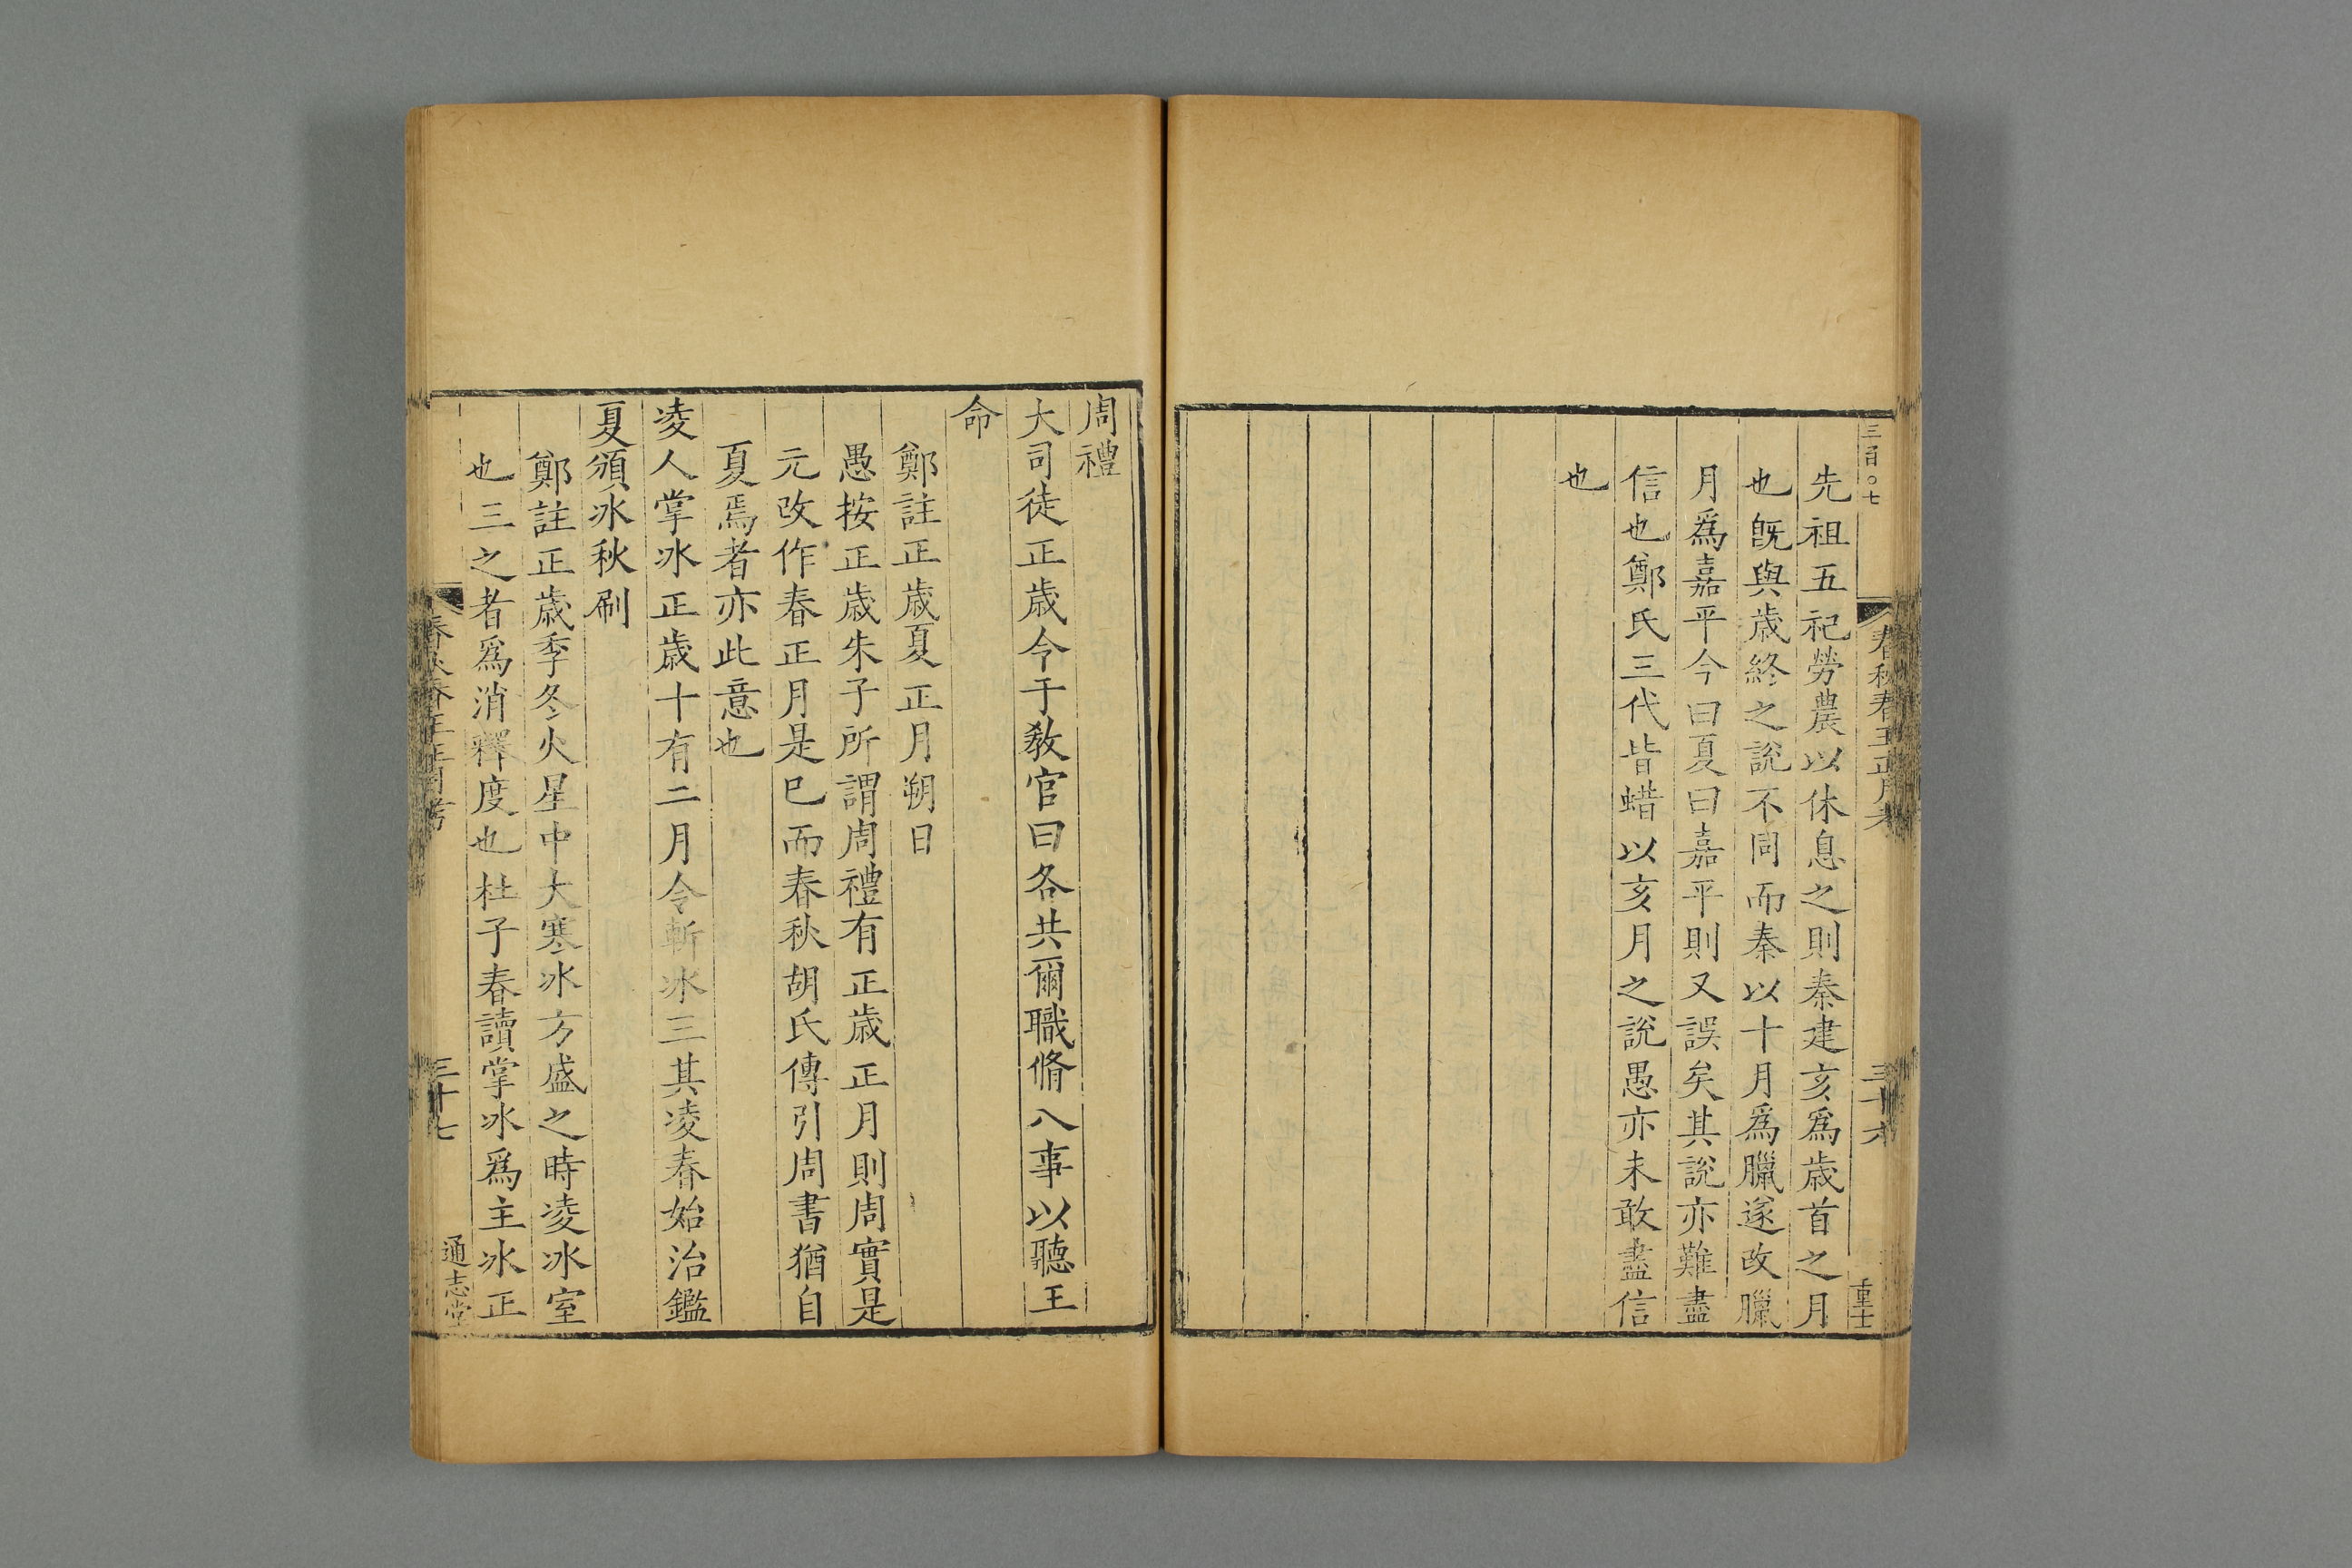 三百〇七
春秋春王正月考
三十六
重士
先祖五祀勞農以休息之則秦建亥爲歲首之月
也旣與歲終之說不同而秦以十月爲臘遂改臘
月爲嘉平今曰夏曰嘉平則又誤矣其說亦難盡
信也鄭氏三代皆蜡以亥月之說愚亦未敢盡信
也
周禮
大司徒正歲令于敎官曰各共爾職脩八事以聽王
命
鄭註正歲夏正月朔日
愚按正歲朱子所謂周禮有正歲正月則周實是
元改作春正月是巳而春秋胡氏傳引周書猶自
夏焉者亦此意也
凌人掌冰正歲十有二月令斬冰三其凌春始治鑑
夏頒冰秋刷
鄭註正歲季冬火星中大寒冰方盛之時凌冰室
也三之者爲消釋度也杜子春讀掌冰爲主冰正
春秋春王正月考
三十七
通志堂